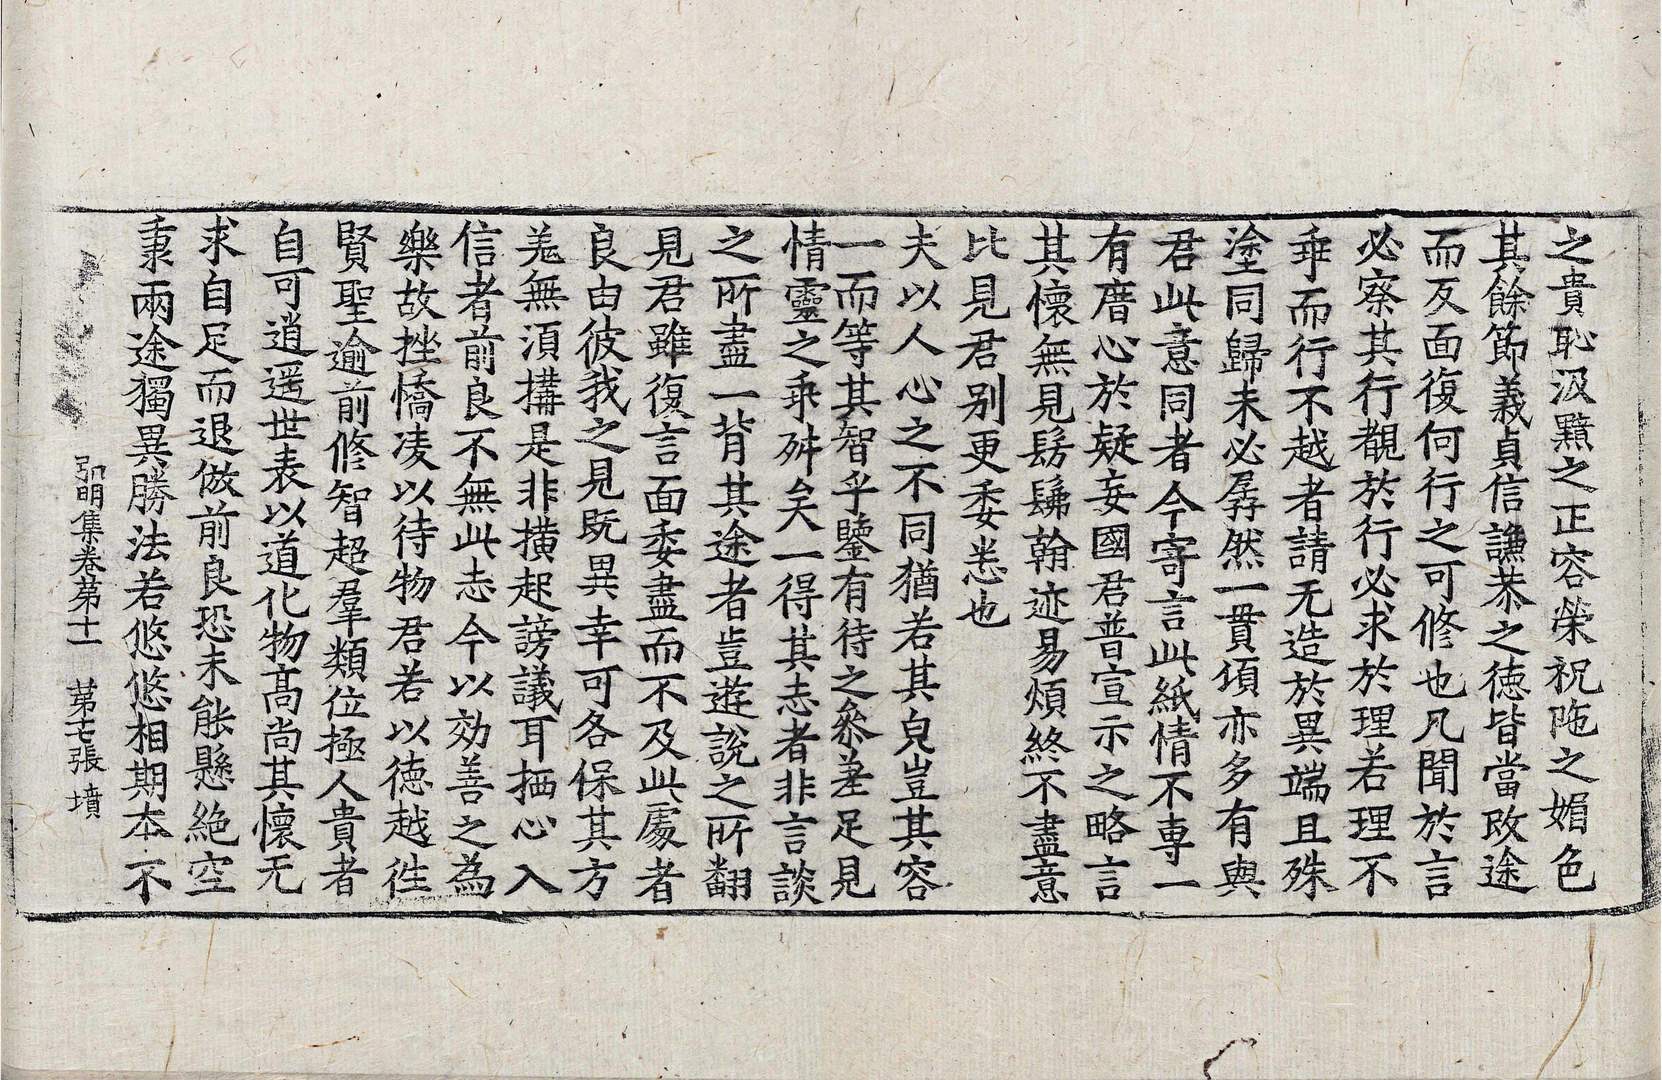 之貴恥汲黯之正容榮祝陁之媚色
其餘節義貞信謙恭之德皆當改途
而反面復何行之可修也凡聞於言
必察其行覩於行必求於理若理不
乖而行不越者請无造於異端且殊
塗同歸未必孱然一貫頃亦多有與
君此意同者今寄言此紙情不專一
有厝心於疑妄國君普宣示之略言
其懷無見髣髴翰迹易煩終不盡意
比見君別更委悉也
夫以人心之不同猶若其皃豈其容
一而等其智乎鑒有待之叅差足見
情靈之乖舛矣一得其志者非言談
之所盡一背其途者豈遊說之所翻
見君雖復言面委盡而不及此處者
良由彼我之見既異幸可各保其方
羗無湏搆是非橫起謗議耳栖心入
信者前良不無此志今以効善之為
樂故挫憍凌以待物君若以德越往
賢聖逾前修智超羣類位極人貴者
自可逍遥世表以道化物高尚其懷无
求自足而退倣前良恐未能懸絶空
秉兩途獨異勝法若悠悠相期本不
弘明集卷第十一　第七張　墳